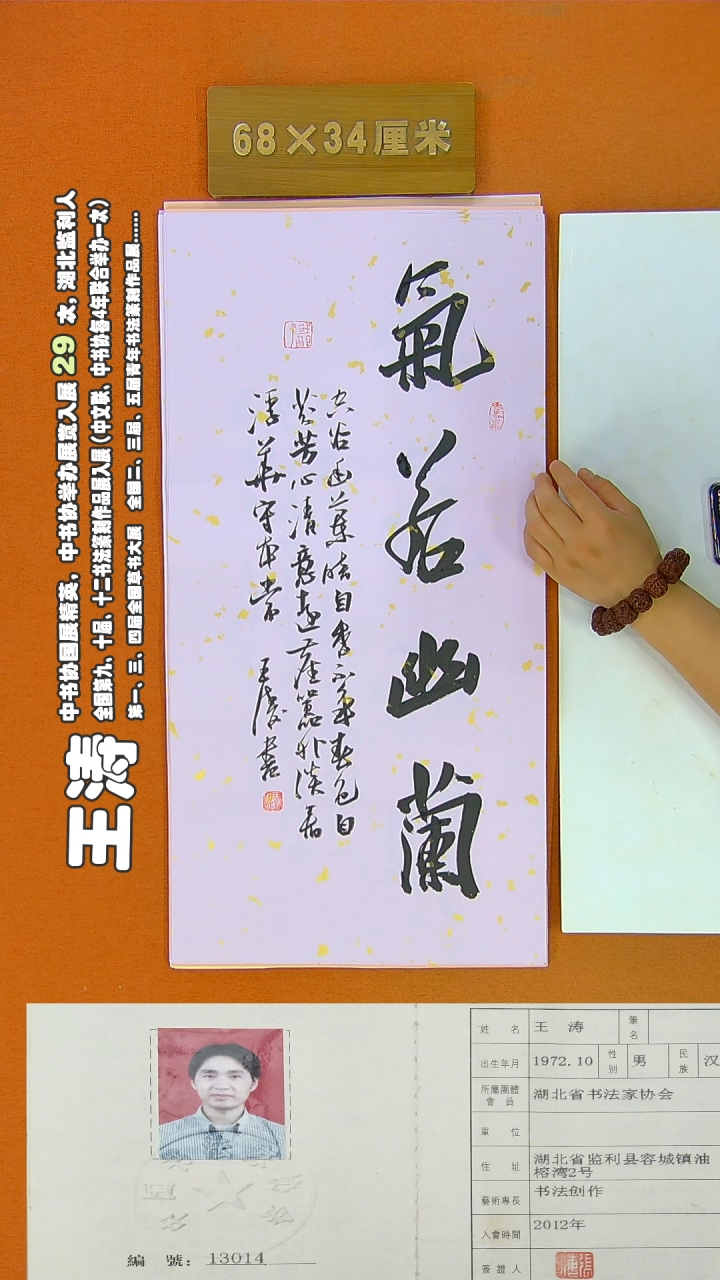 68×34厘米
中书协国展精英，中书协举办展赛入展 29 次，湖北监利人
全国第九、十届、十二书法篆刻作品展入展（中文联、中书协每4年联合举办一次）
第一、三、四届全国草书大展 全国二、三届、五届青年书法篆刻作品展……
王涛
氣若幽蘭
空谷幽蘭暗自香不爭春色自
芬芳心清意遠塵囂外淡看
浮華守本常 王濤書
姓 名 王 涛 筆名
出生年月 1972.10 性別 男 民族 汉
所屬團體會員 湖北省书法家协会
單 位
住 址 湖北省监利县容城镇油
榕湾2号
藝術專長 书法创作
入會時間 2012年
簽證人
編 號：13014